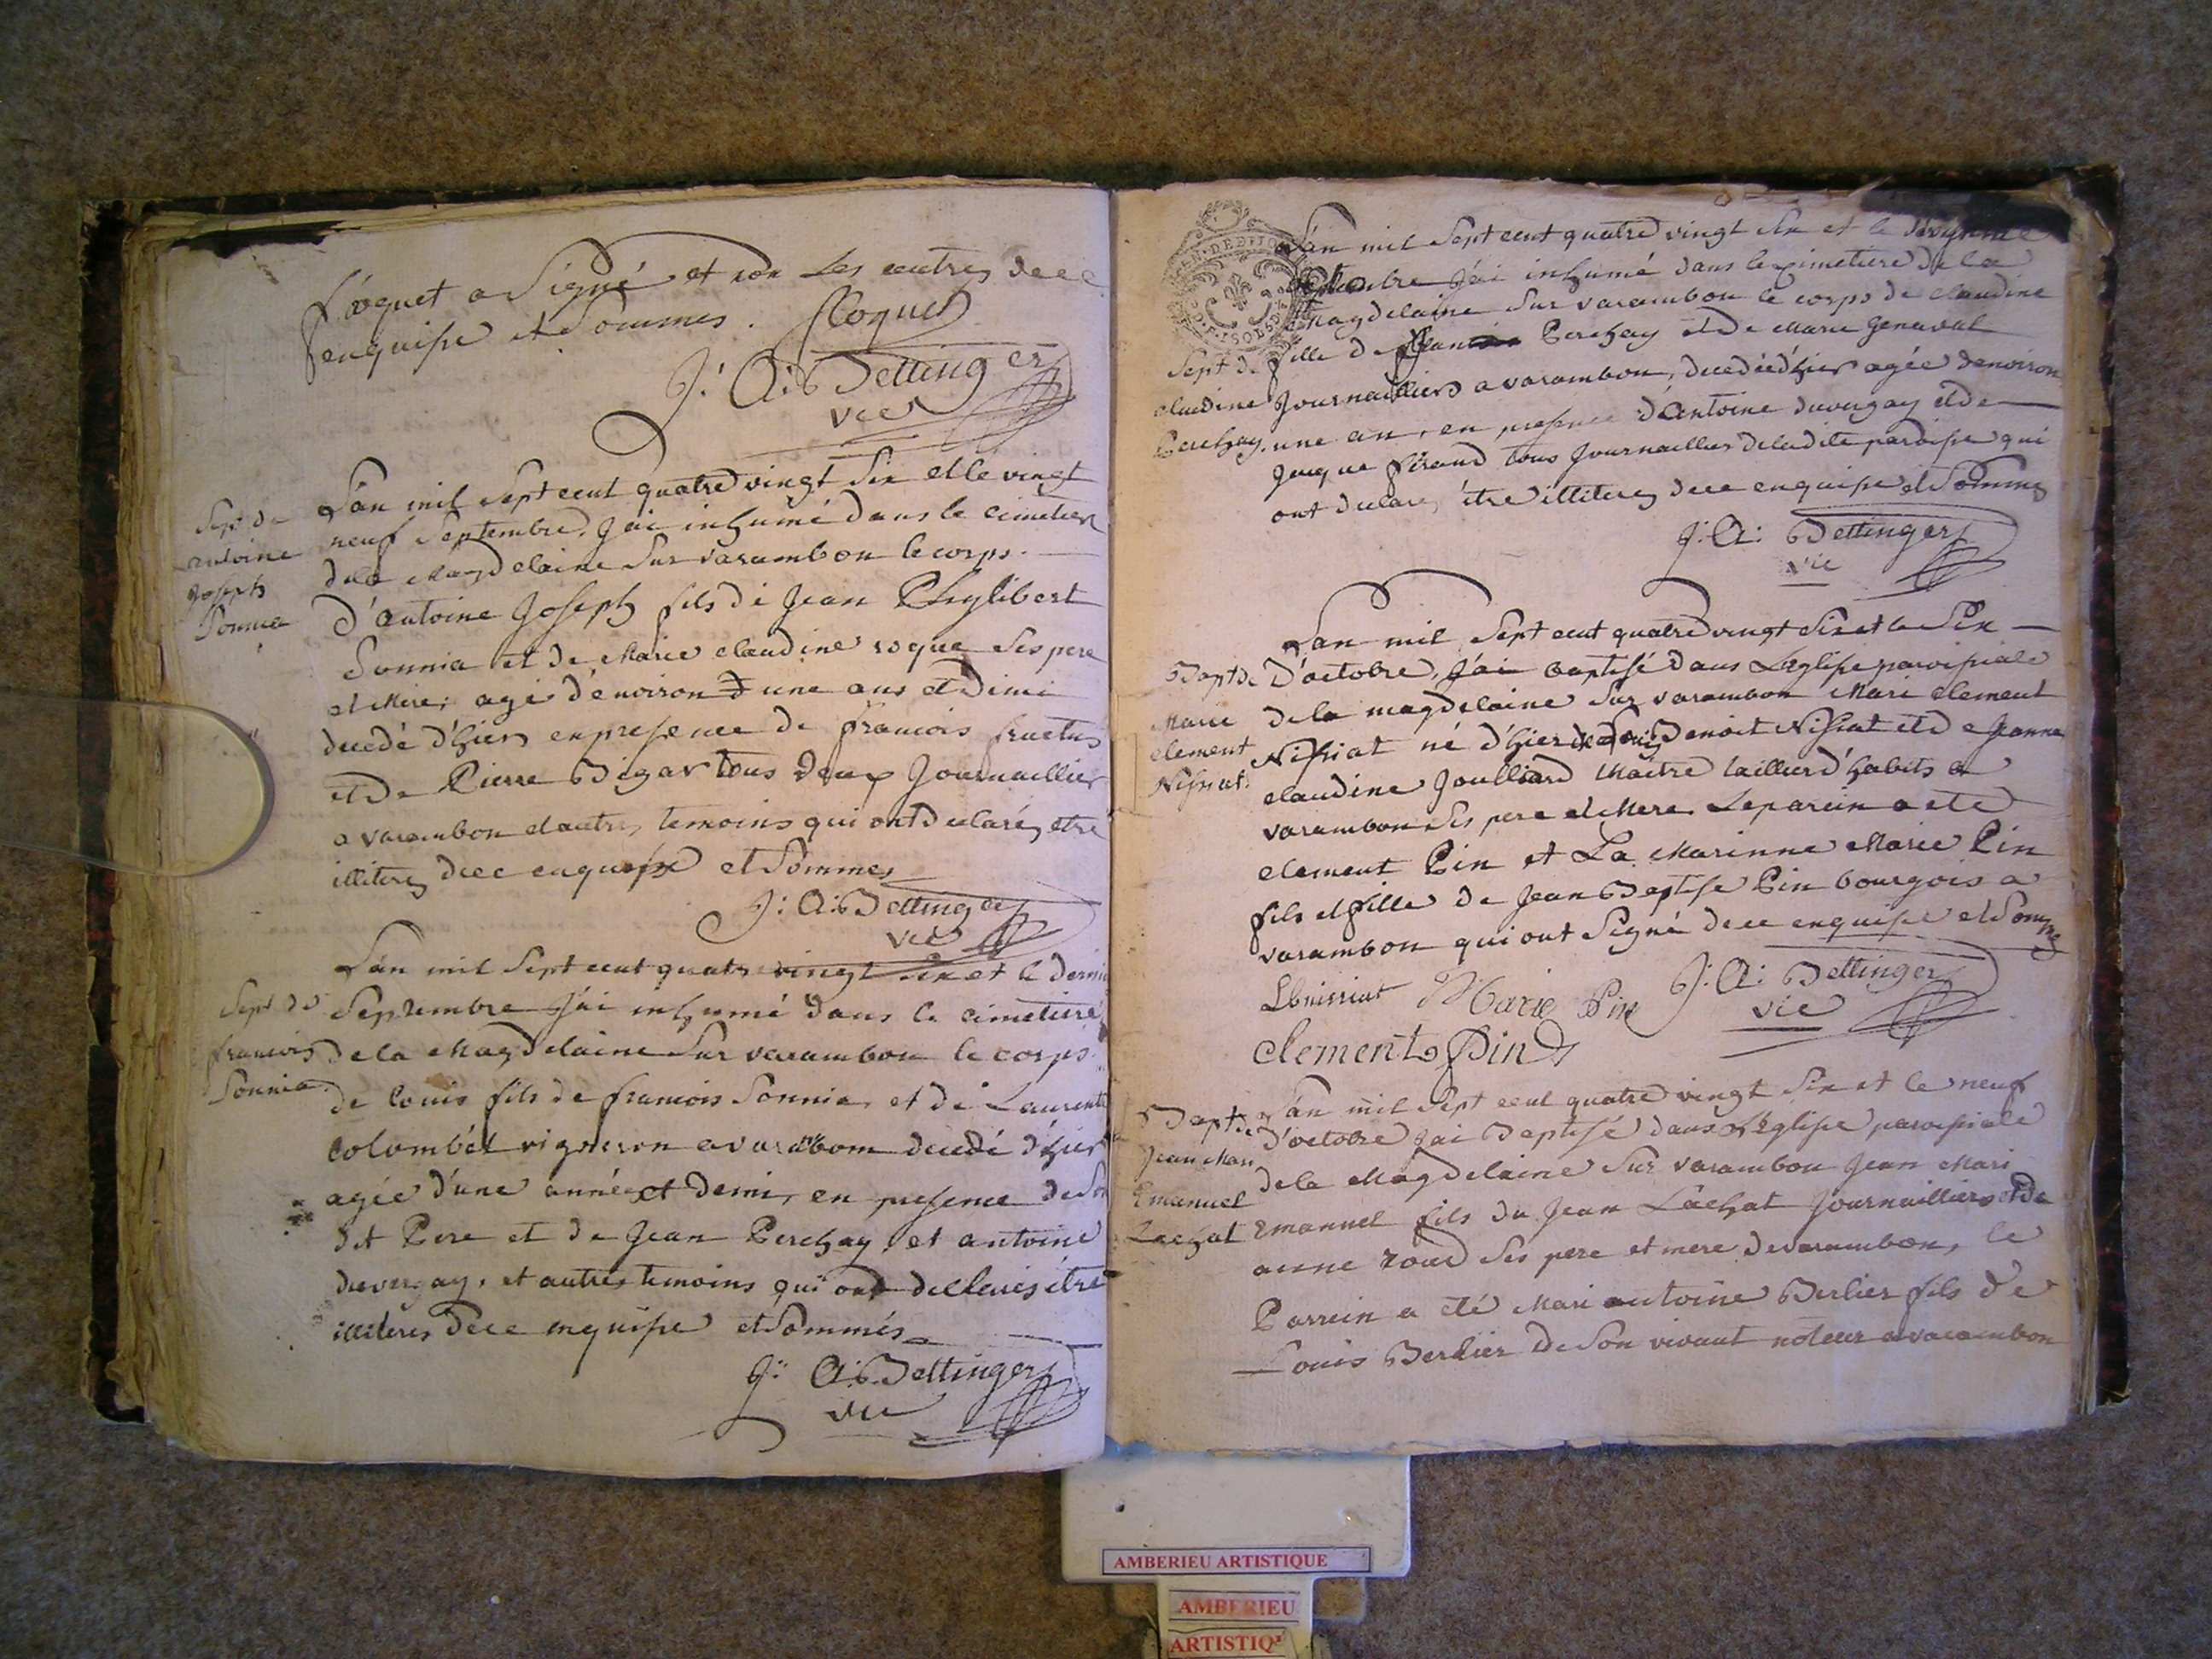 floquet a Signé et non Les autres de ce
enquise et Sommes. floquet
J: A: Bettinger
vic
Sept de
antoine
Joseph
Sonnia
L'an mil Sept cent quatre vingt Six et le vingt
neuf Septembre, J'ai inhumé dans le cimetier
dela Magdelaine Sur varambon le corps
d'antoine Joseph fils de Jean Phylibert
Sonnia et de Marie claudine roque Ses pere
et Mere, agé d'environ d'une ans et Dimi
decedé d'hier en presence de francois fructus
et de Pierre Bigar tous deux Journaillier
a varambon et autres temoins qui ont declarés etre
illiteres dece enquise et Sommes
J: A: Bettinger
vic
Sept de
francois
Sonnia
L'an mil Sept cent quatre vingt Six et le dernier
Septembre J'ai inhumé dans le cimetiere
de la Magdelaine Sur varambon le corps
de louis fils de francois Sonnia, et de Laurente
Colombét vigneron a varabom decedé d'hier
agée d'une année et demi, en presence de Son
dit Pere et de Jean Perchay, et antoine
duvergay, et autres temoins qui ont declarés être
illiteres dece enquise et Sommés
J: A: Bettinger
vic
Sept de
claudine
Perchay.
L'an mil Sept cent quatre vingt Six et le
J'ai inhumé dans le Cimetiere de la
Magdelaine Sur varambon le corps de claudine
fille de Perchay et de Marie Genaval
Journailliers a varambon, decedée d'hier agée denviron
une an, en presence d'Antoine duvergay et de
Jacque féraud tous Journaillier deladite paroisse qui
ont declarés être illiteres dece enquise et Sommes
J: A: Bettinger
vic
Bapt de
Marie
clement
Nissiat.
L'an mil Sept cent quatre vingt Six et le Six
D'octobre, J'ai Baptisé dans L'eglise paroissiale
de la magdelaine Sur varambon Mari clement
Nissiat né d'hier Benoit Nissiat et de Jeanne
claudine Joulliard Maitre tailleur d'habits a
varambon Ses pere et Mere Leparein a eté
clement Pin et La Marinne Marie Pin
fils et fille de Jean Baptise Pin bourgois a
varambon qui ont Signé de ce enquise et Sommes
Lbnissiat Marie Pin J: A: Bettinger
vic
Clement Pin
Bapt de
Jean Mari
Emanuel
Lachat
L'an mil Sept cent quatre vingt Six et le neuf
d'octobre J'ai Baptisé dans L'Eglise paroissiale
de la Magdelaine Sur varambon Jean Mari
Emanuel fils du Jean Lachat Journaillier et de
anne roud Ses pere et mere de varambon, le
Parrein a eté Mari antoine Berlier fils de
Louis Berlier de Son vivant noteur a varambon
AMBERIEU ARTISTIQUE
AMBERIEU
ARTISTIQ